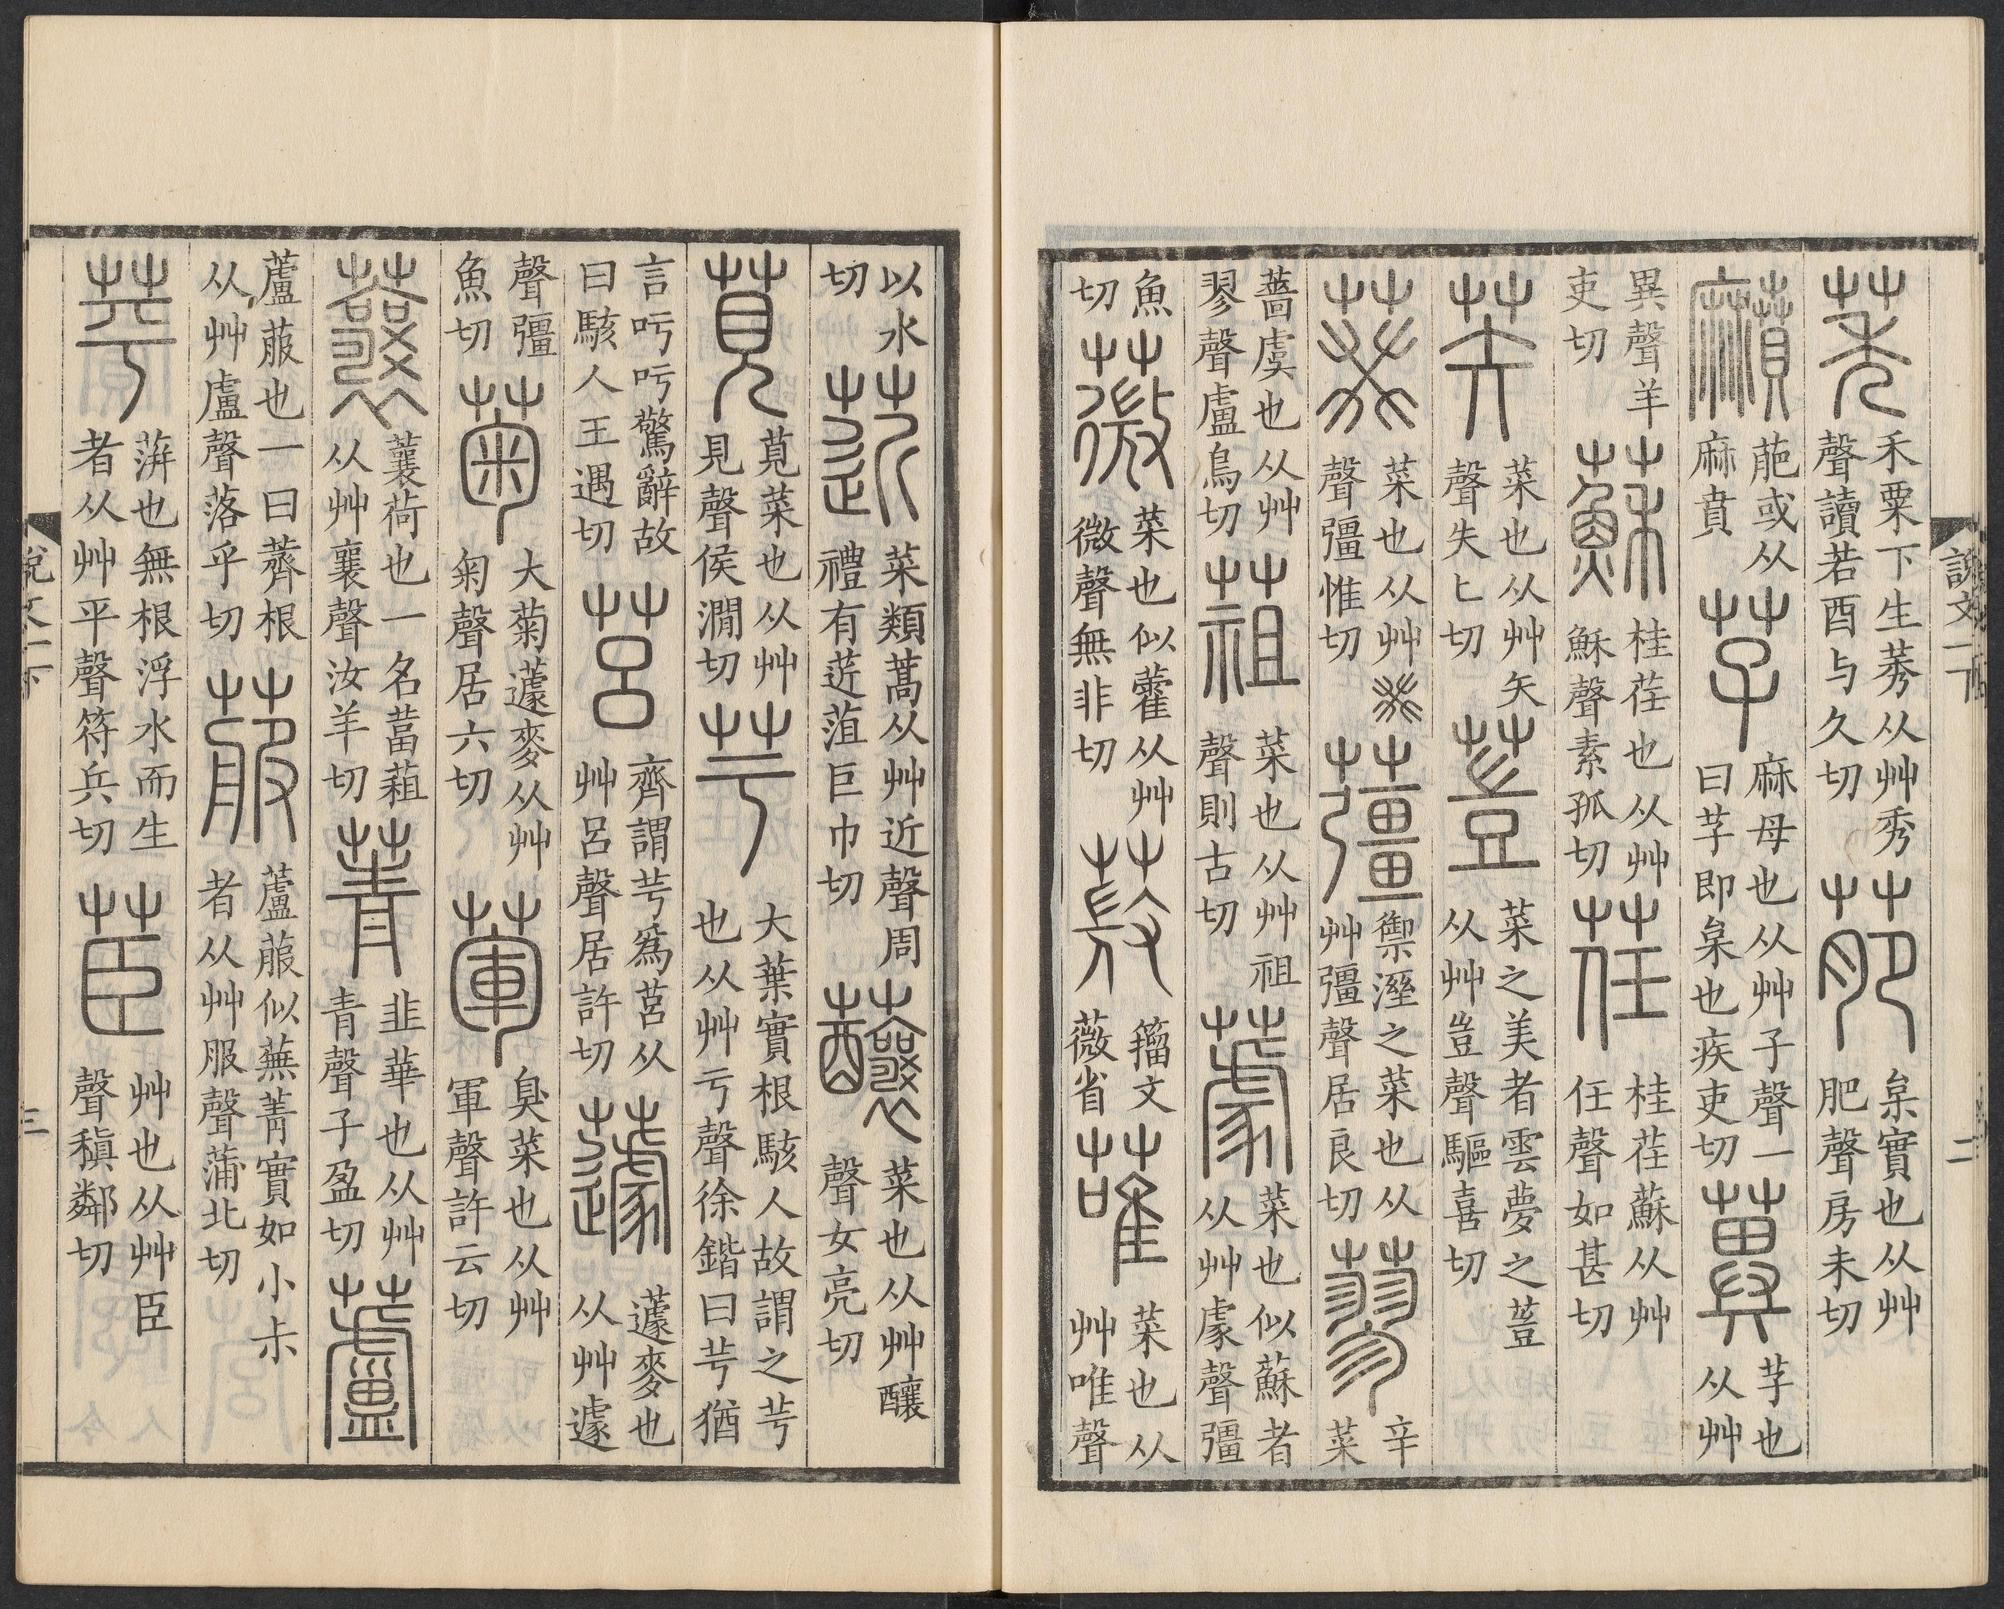 說文一下 二
莠禾粟下生莠从艸秀聲讀若酉与久切萉枲實也从艸肥聲房未切
𪎰萉或从麻賁芓麻母也从艸子聲一曰芓即枲也疾吏切𦳝芓也从艸
異聲羊吏切蘇桂荏也从艸穌聲素孤切荏桂荏蘇从艸任聲如甚切
𦬊菜也从艸矢聲失匕切䔇菜之美者雲夢之䔇从艸豈聲驅喜切
葵菜也从艸癸聲彊惟切䕬禦溼之菜也从艸彊聲居良切蓼辛菜
薔虞也从艸翏聲盧鳥切䔃菜也从艸祖聲則古切蒢菜也似蘇者从艸豦聲彊
魚切薇菜也似藿从艸微聲無非切𧁋籀文薇省蓶菜也从艸唯聲
以水切菦菜類蒿从艸近聲周禮有菦菹巨巾切蘸菜也从艸釀聲女亮切
莧莧菜也从艸見聲侯澗切芌大葉實根駭人故謂之芌也从艸亏聲徐鍇曰芌猶
言吁吁驚辭故曰駭人王遇切莒齊謂芌爲莒从艸呂聲居許切蘧蘧麥也从艸遽
聲彊魚切菊大菊蘧麥从艸匊聲居六切葷臭菜也从艸軍聲許云切
蘘蘘荷也一名葍蒩从艸襄聲汝羊切菁韭華也从艸青聲子盈切蘆
蘆菔也一曰薺根从艸盧聲落乎切菔蘆菔似蕪菁實如小尗者从艸服聲蒲北切
苹蓱也無根浮水而生者从艸平聲符兵切茞艸也从艸臣聲稹鄰切
說文一下 三